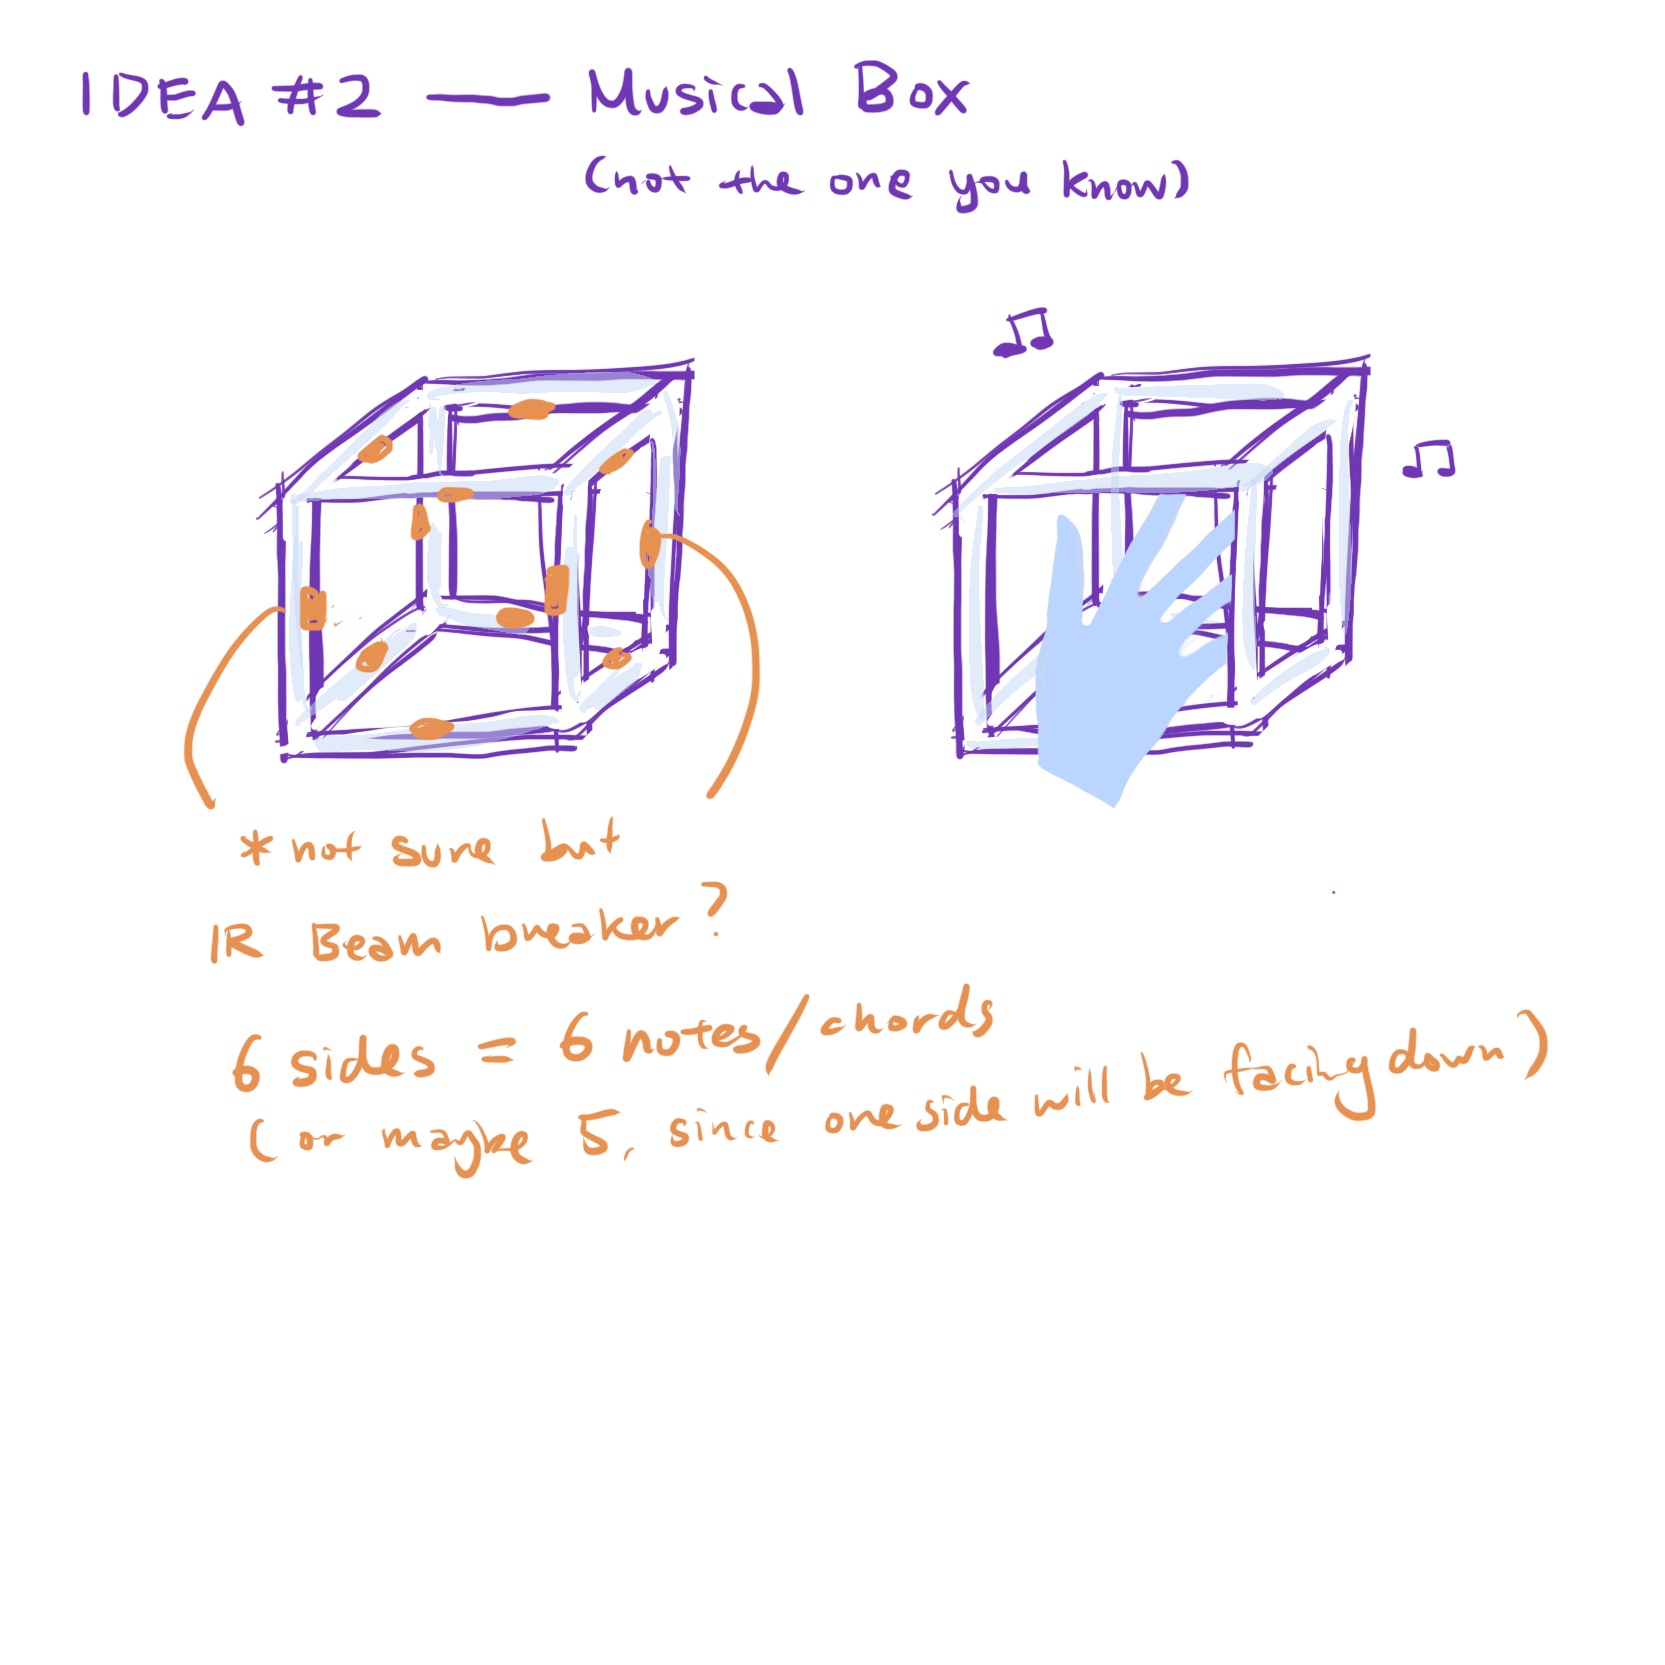 IDEA #2 — Musical Box
(not the one you know)
* not sure but
IR Beam breaker?
6 sides = 6 notes/chords
(or maybe 5, since one side will be facing down)